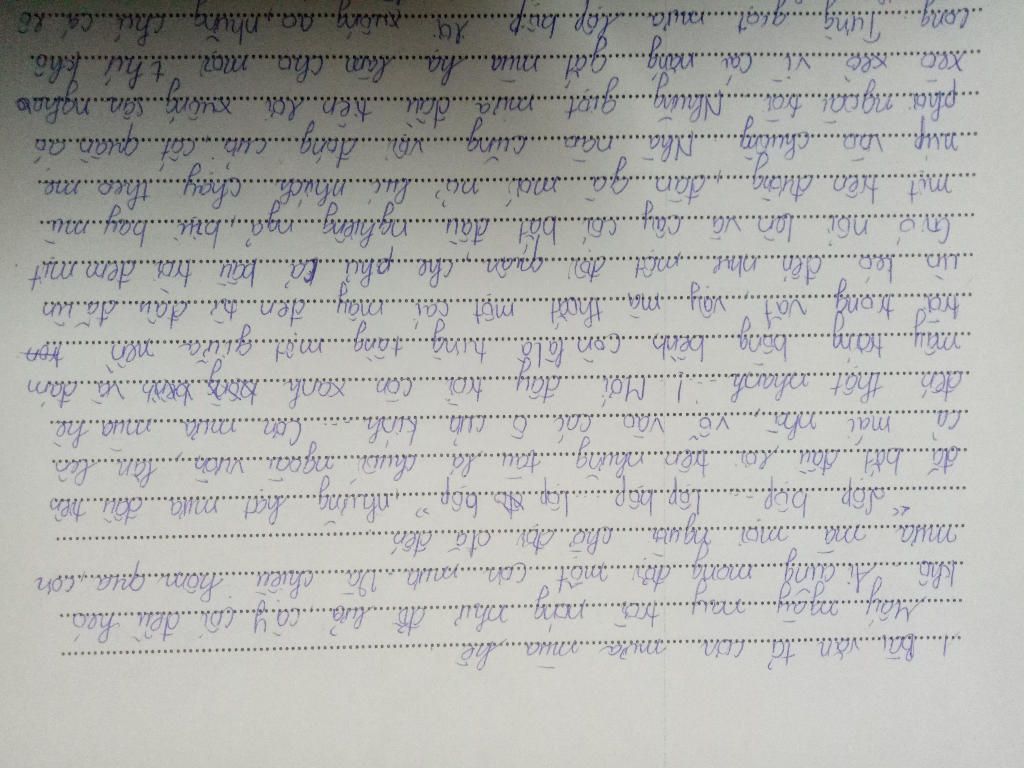 1. Bài văn tả cơn mưa mùa hè
Mấy ngày nay trời nóng như đổ lửa, cây cối đều héo
khô. Ai cũng mong đợi một cơn mưa. Và chiều hôm qua, cơn
mưa mà mọi người chờ đợi đã đến.
"Lộp bộp... Lộp bộp... lộp bộp", những hạt mưa đầu tiên
đã bắt đầu rơi trên những tàu lá chuối ngoài vườn, lăn trên
cả mái nhà, vỗ vào các ô cửa kính... Cơn mưa mùa hè
đến thật nhanh! Mới đây trời còn xanh trong và đám
mây trắng bồng bềnh còn lơ lửng tầng mặt giữa nền
trời trong vắt, vậy mà thoắt một cái mây đen từ đâu đã ùn
ùn kéo đến như một đội quân, che phủ cả bầu trời đem mịt
Gió nổi lên và cây cối bắt đầu nghiêng ngả, bụi bay mù
mịt trên đường, đàn gà mới nở lúc nhích chạy theo mẹ
nụp vào chuồng. Nhà nào cũng vội đóng cửa, cất quần áo
phơi ngoài trời. Những giọt mưa đầu tiên rơi xuống sân nghe
xèo xèo vì cái nắng gắt mùa hạ làm cho mọi thứ khô
cong. Từng giọt mưa lộp bộp rơi xuống ao, những chú cá rô